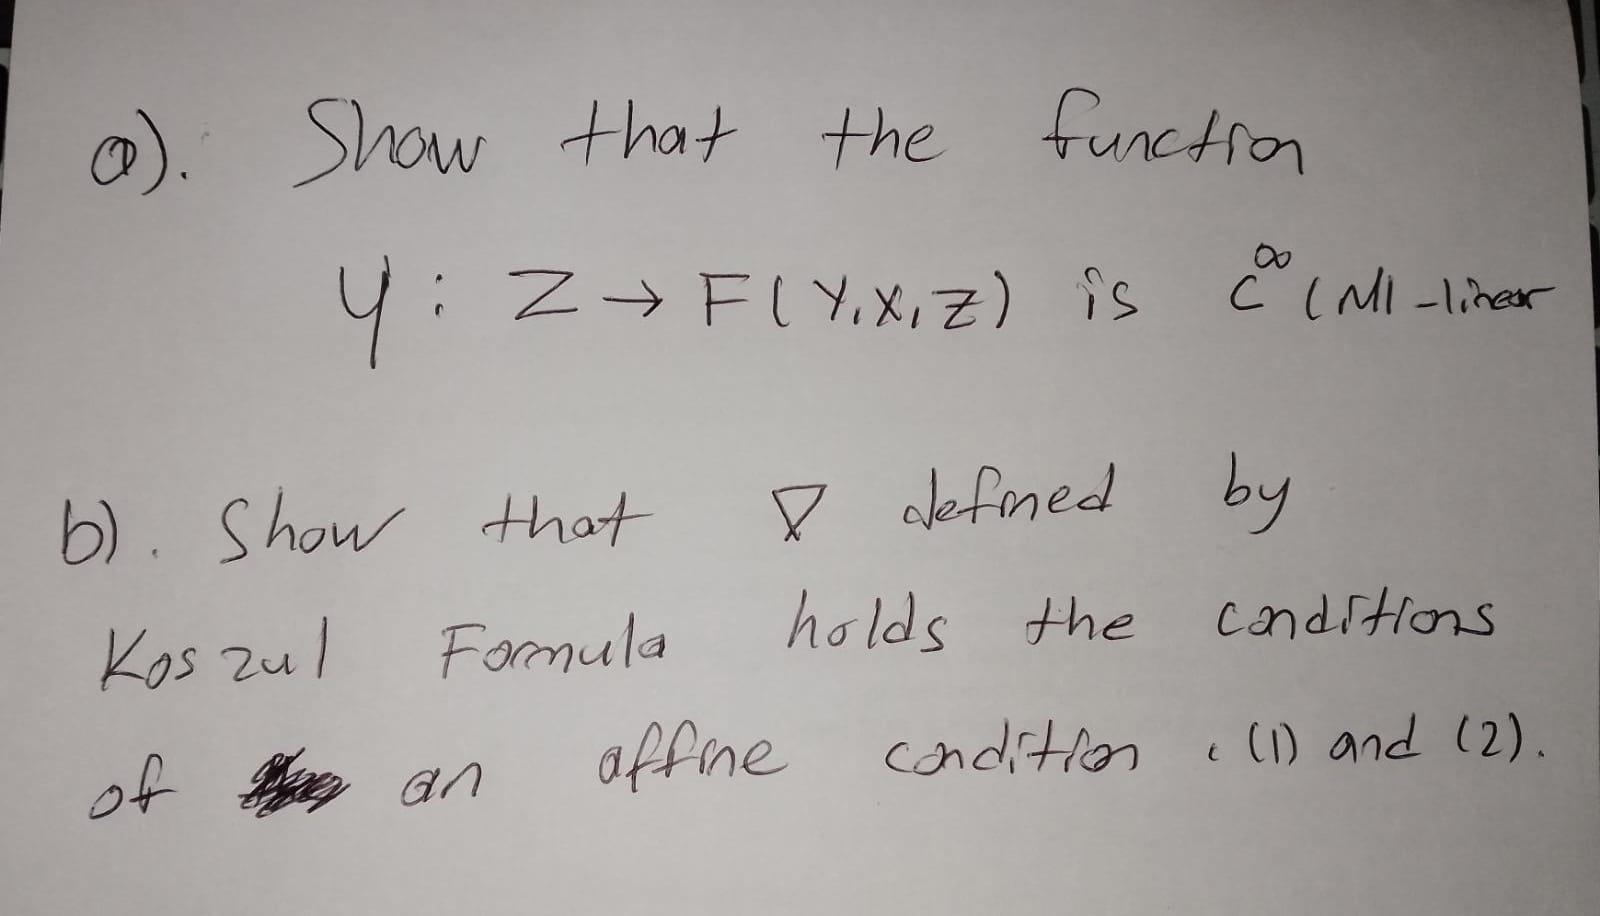 a). Show that the function
Y : Z → F(Y,X,Z) is C∞(M)-linear
b). Show that ∇ defined by
Koszul Formula holds the conditions
of an affine condition. (1) and (2).